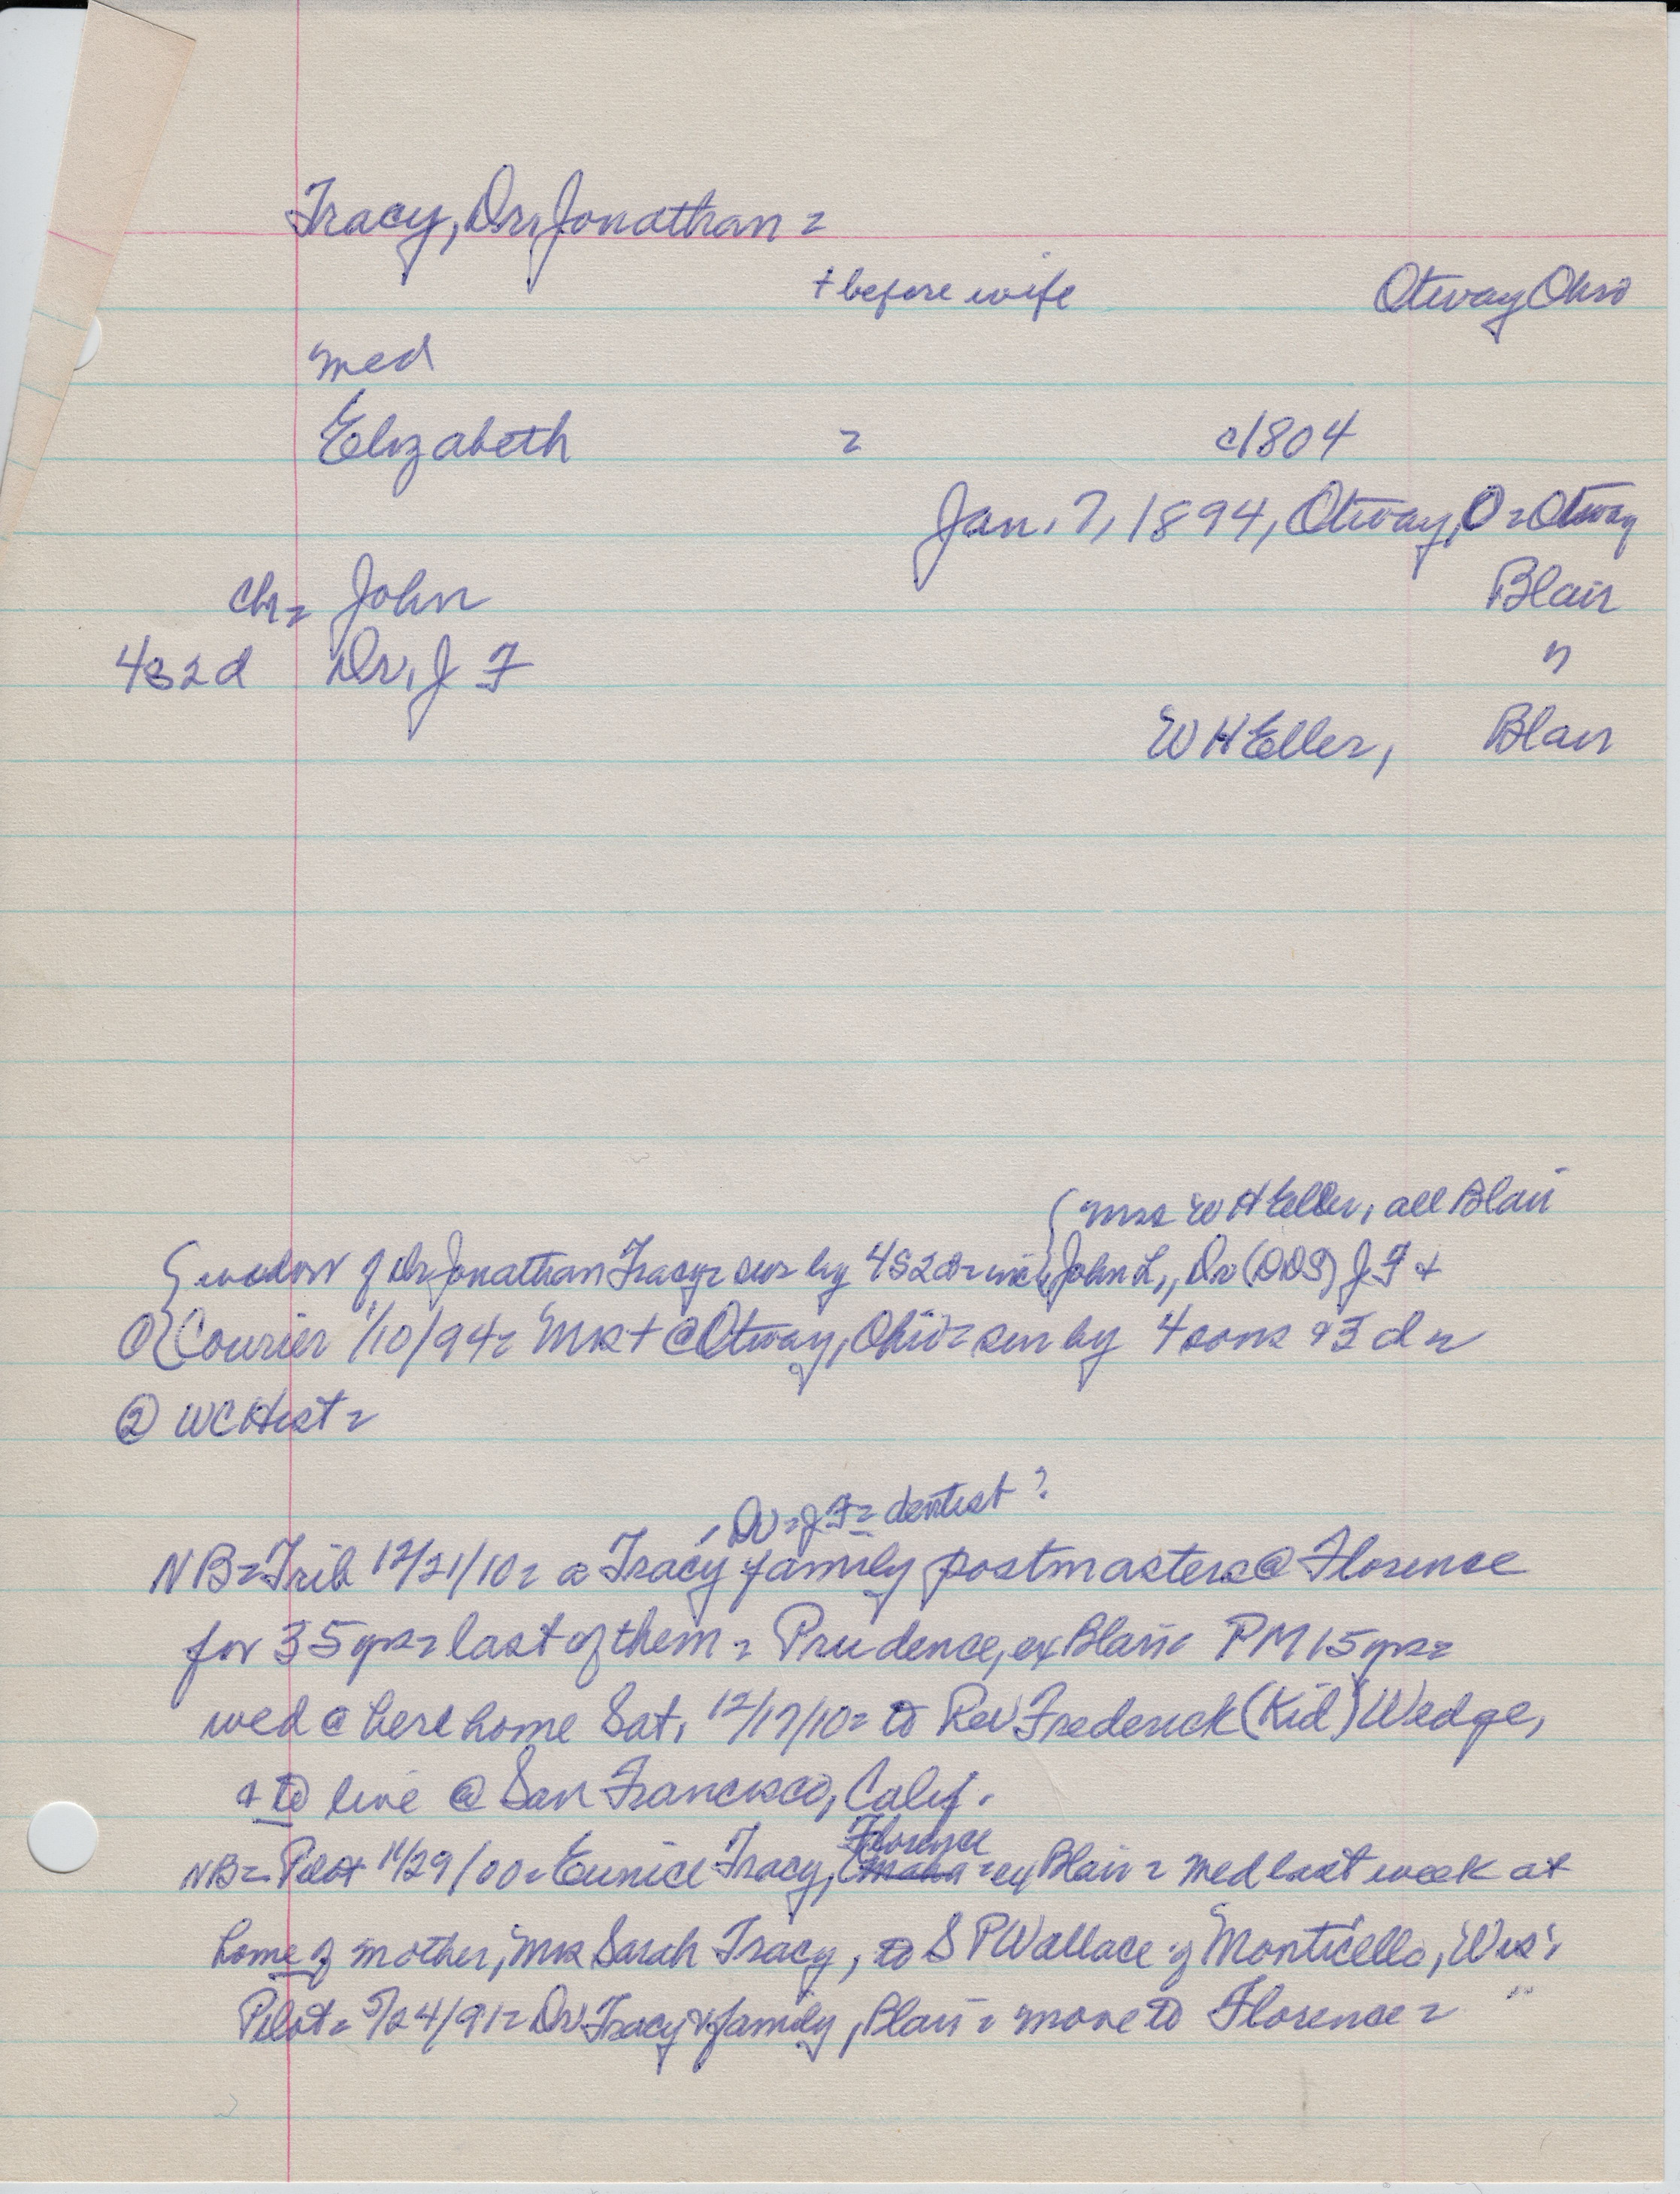 Tracy, Dr. Jonathan =
+ before wife Otway Ohio
med
Elizabeth = c1804
Jan. 7, 1894, Otway, O = Otway
ch = John Blair
4s2d Dr. J F "
W H Eller, Blair
{ Mrs W H Eller, all Blair
{ widow of Dr Jonathan Tracy = sur by 4S2D = incl { John L., Dr (DDS) J F +
① { Courier 1/10/94 = Mrs + @ Otway, Ohio = sur by 4 sons & 3 d =
② WC Hist =
Dr = J F = dentist ?
NB = Trib 12/21/10 = a Tracy family postmasters @ Florence
for 35 yrs = last of them = Prudence, ex Blair PM 15 yrs =
wed @ here home Sat, 12/17/10 = to Rev Frederick (Kid) Wedge,
+ to live @ San Francisco, Calif.
Florence
NB = Pilot 11/29/00 = Eunice Tracy, Omaha = ex Blair = med last week at
home of mother, Mrs Sarah Tracy, to S P Wallace of Monticello, Wis.
Pilot = 5/24/91 = Dr Tracy & family, Blair = move to Florence = "